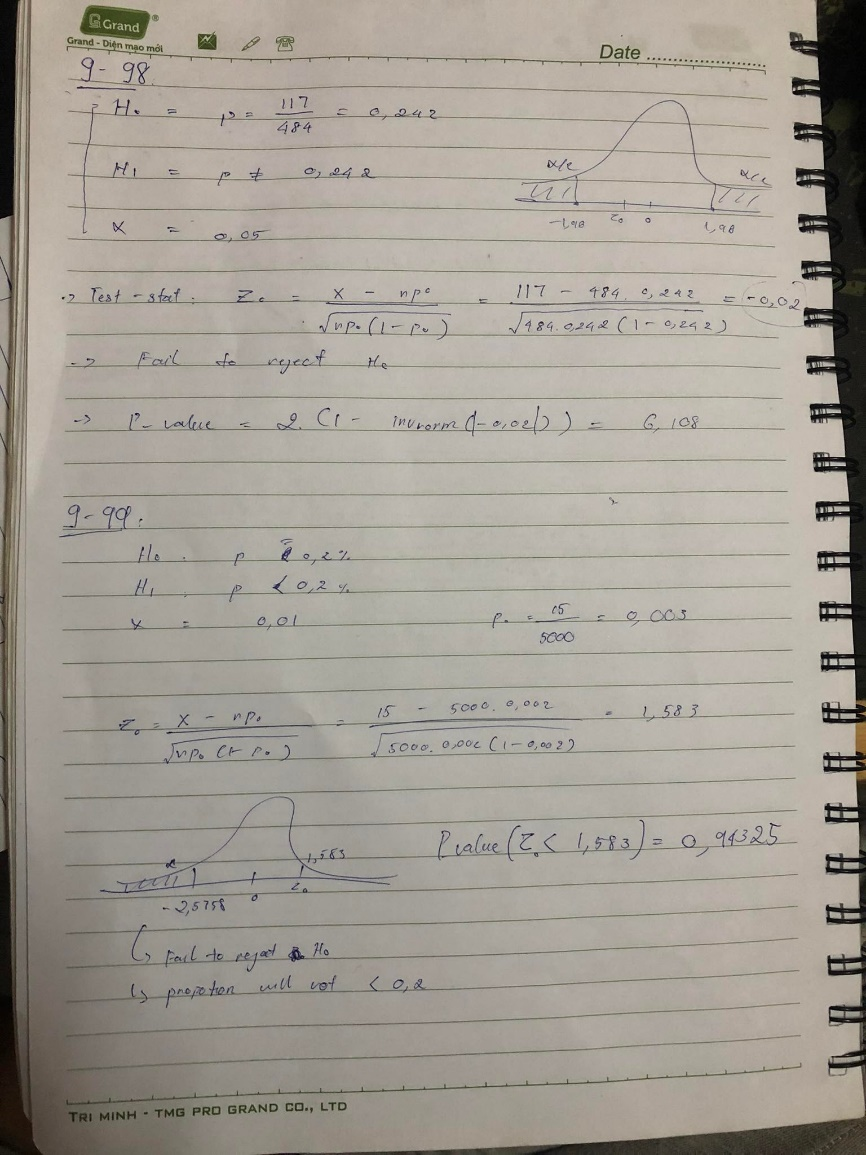 Grand®
Grand - Diện mạo mới
Date ....................
9-98
H₀ = p = 117/484 = 0,242
H₁ = p ≠ 0,242
α = 0,05
α/2 α/2
-1,96 z₀ 0 1,96
-> Test-stat: Z₀ = X - np₀ / √np₀(1-p₀) = 117 - 484.0,242 / √484.0,242(1-0,242) = -0,02
-> Fail to reject H₀
-> P-value = 2.(1 - invnorm(|-0,02|)) = 6,108
9-99:
H₀: p = 0,2%
H₁: p < 0,2%
α = 0,01 p₀ = 15/5000 = 0,003
Z₀ = X - np₀ / √np₀(1-p₀) = 15 - 5000.0,002 / √5000.0,002(1-0,002) = 1,583
α 1,583
-2,5758 0 z₀
Pvalue(Z₀< 1,583) = 0,94325
↳ Fail to reject H₀
↳ propotion will not < 0,2
TRI MINH - TMG PRO GRAND CO., LTD